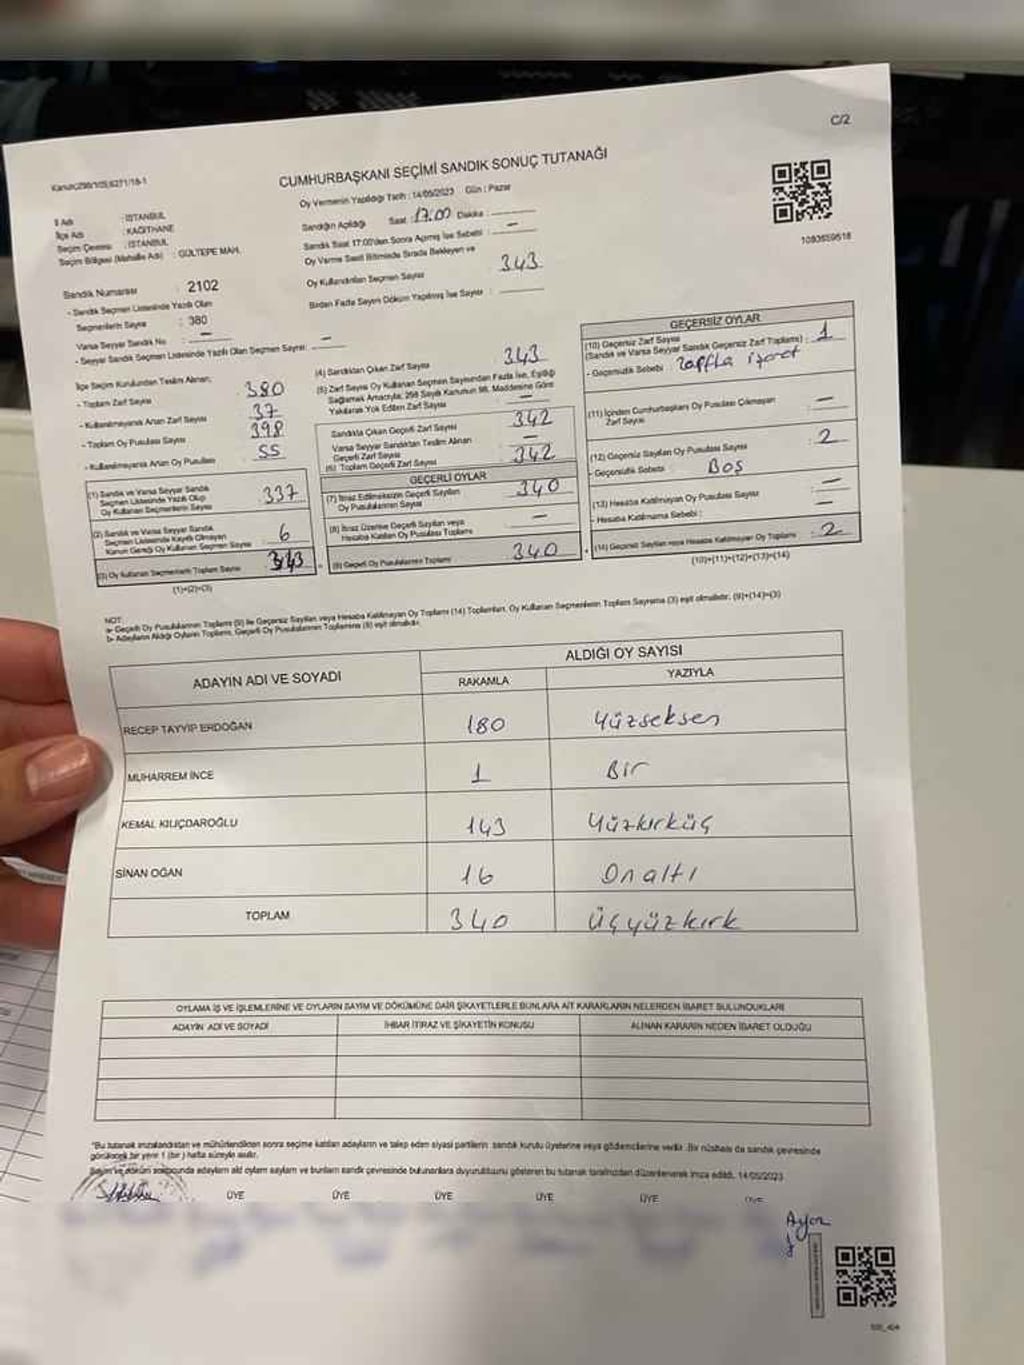 C/2
CUMHURBAŞKANI SEÇİMİ SANDIK SONUÇ TUTANAĞI
Oy Vermenin Yapıldığı Tarih : 14/05/2023 Gün : Pazar
İl Adı : İSTANBUL
İlçe Adı : KAĞITHANE
Seçim Çevresi : İSTANBUL
Seçim Bölgesi (Mahalle Adı) : GÜLTEPE MAH.
Sandığın Açıldığı Saat : 17:00 Dakika : –
Sandık Saat 17:00'den Sonra Açılmış İse Sebebi : –
Oy Verme Saati Bitiminde Sırada Bekleyen ve
Oy Kullandırılan Seçmen Sayısı 343
Birden Fazla Sayım Döküm Yapılmış İse Sayısı :
1083659518
Sandık Numarası : 2102
- Sandık Seçmen Listesinde Yazılı Olan
Seçmenlerin Sayısı : 380
Varsa Seyyar Sandık No : –
- Seyyar Sandık Seçmen Listesinde Yazılı Olan Seçmen Sayısı: –
İlçe Seçim Kurulundan Teslim Alınan;
- Toplam Zarf Sayısı : 380
- Kullanılmayarak Artan Zarf Sayısı : 37
- Toplam Oy Pusulası Sayısı : 398
- Kullanılmayarak Artan Oy Pusulası : 55
(1) Sandık ve Varsa Seyyar Sandık
Seçmen Listesinde Yazılı Olup
Oy Kullanan Seçmenlerin Sayısı : 337
(2) Sandık ve Varsa Seyyar Sandık
Seçmen Listesinde Kayıtlı Olmayan
Kanun Gereği Oy Kullanan Seçmen Sayısı : 6
(3) Oy Kullanan Seçmenlerin Toplam Sayısı 343
(1)+(2)=(3)
(4) Sandıktan Çıkan Zarf Sayısı 343
(5) Zarf Sayısı Oy Kullanan Seçmen Sayısından Fazla İse, Eşitliği
Sağlamak Amacıyla; 298 Sayılı Kanunun 98. Maddesine Göre
Yakılarak Yok Edilen Zarf Sayısı –
Sandıkta Çıkan Geçerli Zarf Sayısı 342
Varsa Seyyar Sandıktan Teslim Alınan
Geçerli Zarf Sayısı –
(6) Toplam Geçerli Zarf Sayısı 342
GEÇERLİ OYLAR
(7) İtiraz Edilmeksizin Geçerli Sayılan
Oy Pusulası Sayısı 340
(8) İtiraz Üzerine Geçerli Sayılan veya
Hesaba Katılan Oy Pusulası Toplamı –
(9) Geçerli Oy Pusulalarının Toplamı 340
GEÇERSİZ OYLAR
(10) Geçersiz Zarf Sayısı
(Sandık ve Varsa Seyyar Sandık Geçersiz Zarf Toplamı) : 1
- Geçersizlik Sebebi : zarfta işaret
(11) İçinden Cumhurbaşkanı Oy Pusulası Çıkmayan
Zarf Sayısı –
(12) Geçersiz Sayılan Oy Pusulası Sayısı 2
- Geçersizlik Sebebi Boş
(13) Hesaba Katılmayan Oy Pusulası Sayısı –
- Hesaba Katılmama Sebebi : –
(14) Geçersiz Sayılan veya Hesaba Katılmayan Oy Toplamı 2
(10)+(11)+(12)+(13)=(14)
NOT:
a- Geçerli Oy Pusulalarının Toplamı (9) ile Geçersiz Sayılan veya Hesaba Katılmayan Oy Toplamı (14) Toplamları, Oy Kullanan Seçmenlerin Toplam Sayısına (3) eşit olmalıdır. (9)+(14)=(3)
b- Adayların Aldığı Oyların Toplamı, Geçerli Oy Pusulalarının Toplamına (9) eşit olmalıdır.
ADAYIN ADI VE SOYADI
ALDIĞI OY SAYISI
RAKAMLA YAZIYLA
RECEP TAYYİP ERDOĞAN 180 Yüzseksen
MUHARREM İNCE 1 Bir
KEMAL KILIÇDAROĞLU 143 Yüzkırküç
SİNAN OĞAN 16 Onaltı
TOPLAM 340 Üçyüzkırk
OYLAMA İŞ VE İŞLEMLERİNE VE OYLARIN SAYIM VE DÖKÜMÜNE DAİR ŞİKAYETLERLE BUNLARA AİT KARARLARIN NELERDEN İBARET BULUNDUKLARI
ADAYIN ADI VE SOYADI İHBAR İTİRAZ VE ŞİKAYETİN KONUSU ALINAN KARARIN NEDEN İBARET OLDUĞU
"Bu tutanak imzalandıktan ve mühürlendikten sonra seçime katılan adayların ve talep eden siyasi partilerin sandık kurulu üyelerine veya gözlemcilerine verilir. Bir nüshası da sandık çevresinde
görülecek bir yere 1 (bir) hafta süreyle asılır.
Sayım ve döküm sonucunda adayların aldığı oyların sayısını ve bunların sandık çevresinde bulunanlara duyurulduğunu gösteren bu tutanak tarafımızdan düzenlenerek imza edildi. 14/05/2023
ÜYE ÜYE ÜYE ÜYE ÜYE ÜYE